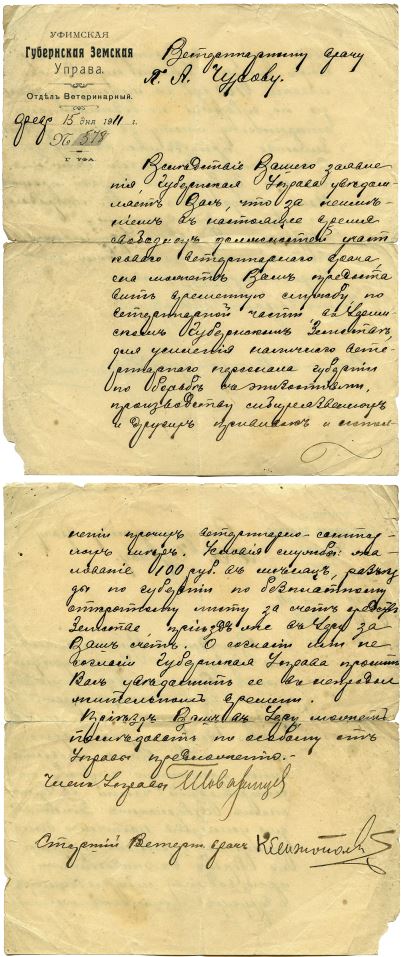 УФИМСКАЯ
Губернская Земская
Управа.
Отдѣлъ Ветеринарный.
февр 15 дня 1911 г.
№ 578
Г. УФА
Ветеринарному врачу
П. А. Чусову.
Вслѣдствіе Вашего заявле
нія, Губернская Управа увѣдом
ляетъ Васъ, что за неимѣ
ніемъ въ настоящее время
свободныхъ должностей участ
коваго ветеринарнаго врача
она можетъ Вамъ предоста
вить временную службу по
ветеринарной части въ Уфим
скомъ Губернскомъ Земствѣ,
для усиленія наличнаго вете
ринарнаго персонала губерніи
по борьбѣ съ эпизоотіями,
производству сибиреязвенныхъ
и другихъ прививокъ и испол-
неніи прочихъ ветеринарно-санитар
ныхъ мѣръ. Условія службы: жа
лованіе 100 руб. въ мѣсяцъ, разъѣз
ды по губерніи по безплатному
открытому листу за счетъ средствъ
Земства, пріѣздъ же въ Уфу за
Вашъ счетъ. О согласіи или не
согласіи Губернская Управа проситъ
Васъ увѣдомить ее въ непродол
жительномъ времени.
Пріѣздъ Вашъ въ Уфу можетъ
послѣдовать по особому отъ
Управы предложенію.
Членъ Управы
Старшій Ветерин. врачъ